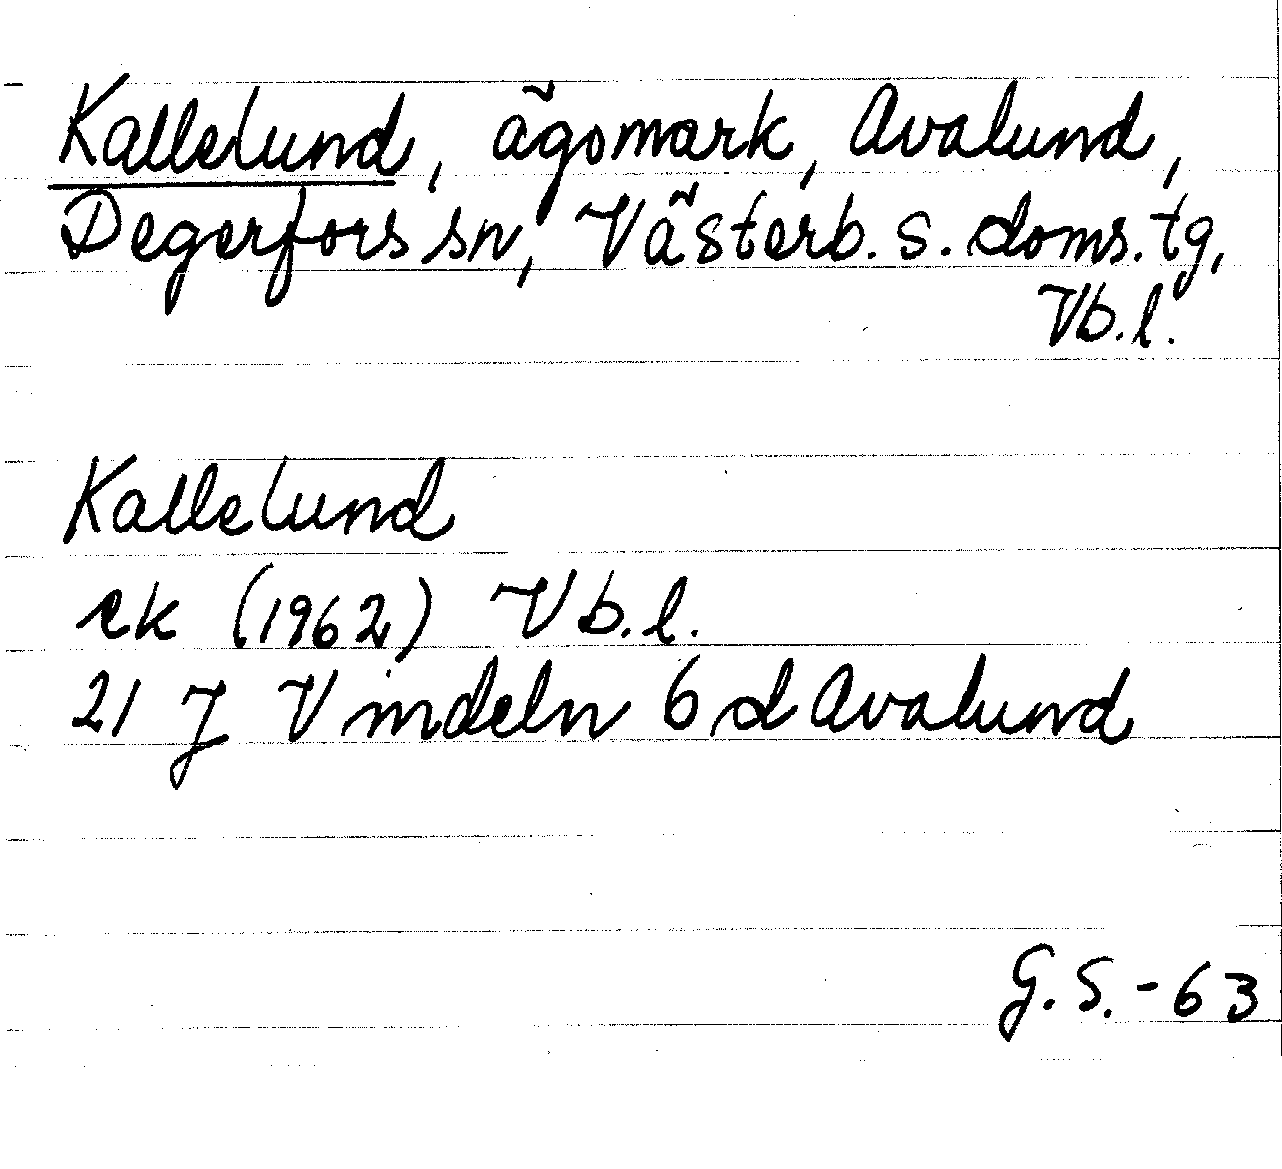 Kallelund, ägomark, Avalund,
Degerfors sn, Västerb. s. doms. tg,
Vb. l.
Kallelund
ek (1962) Vb. l.
21 J Vindeln 6 d Avalund
G. S. - 63